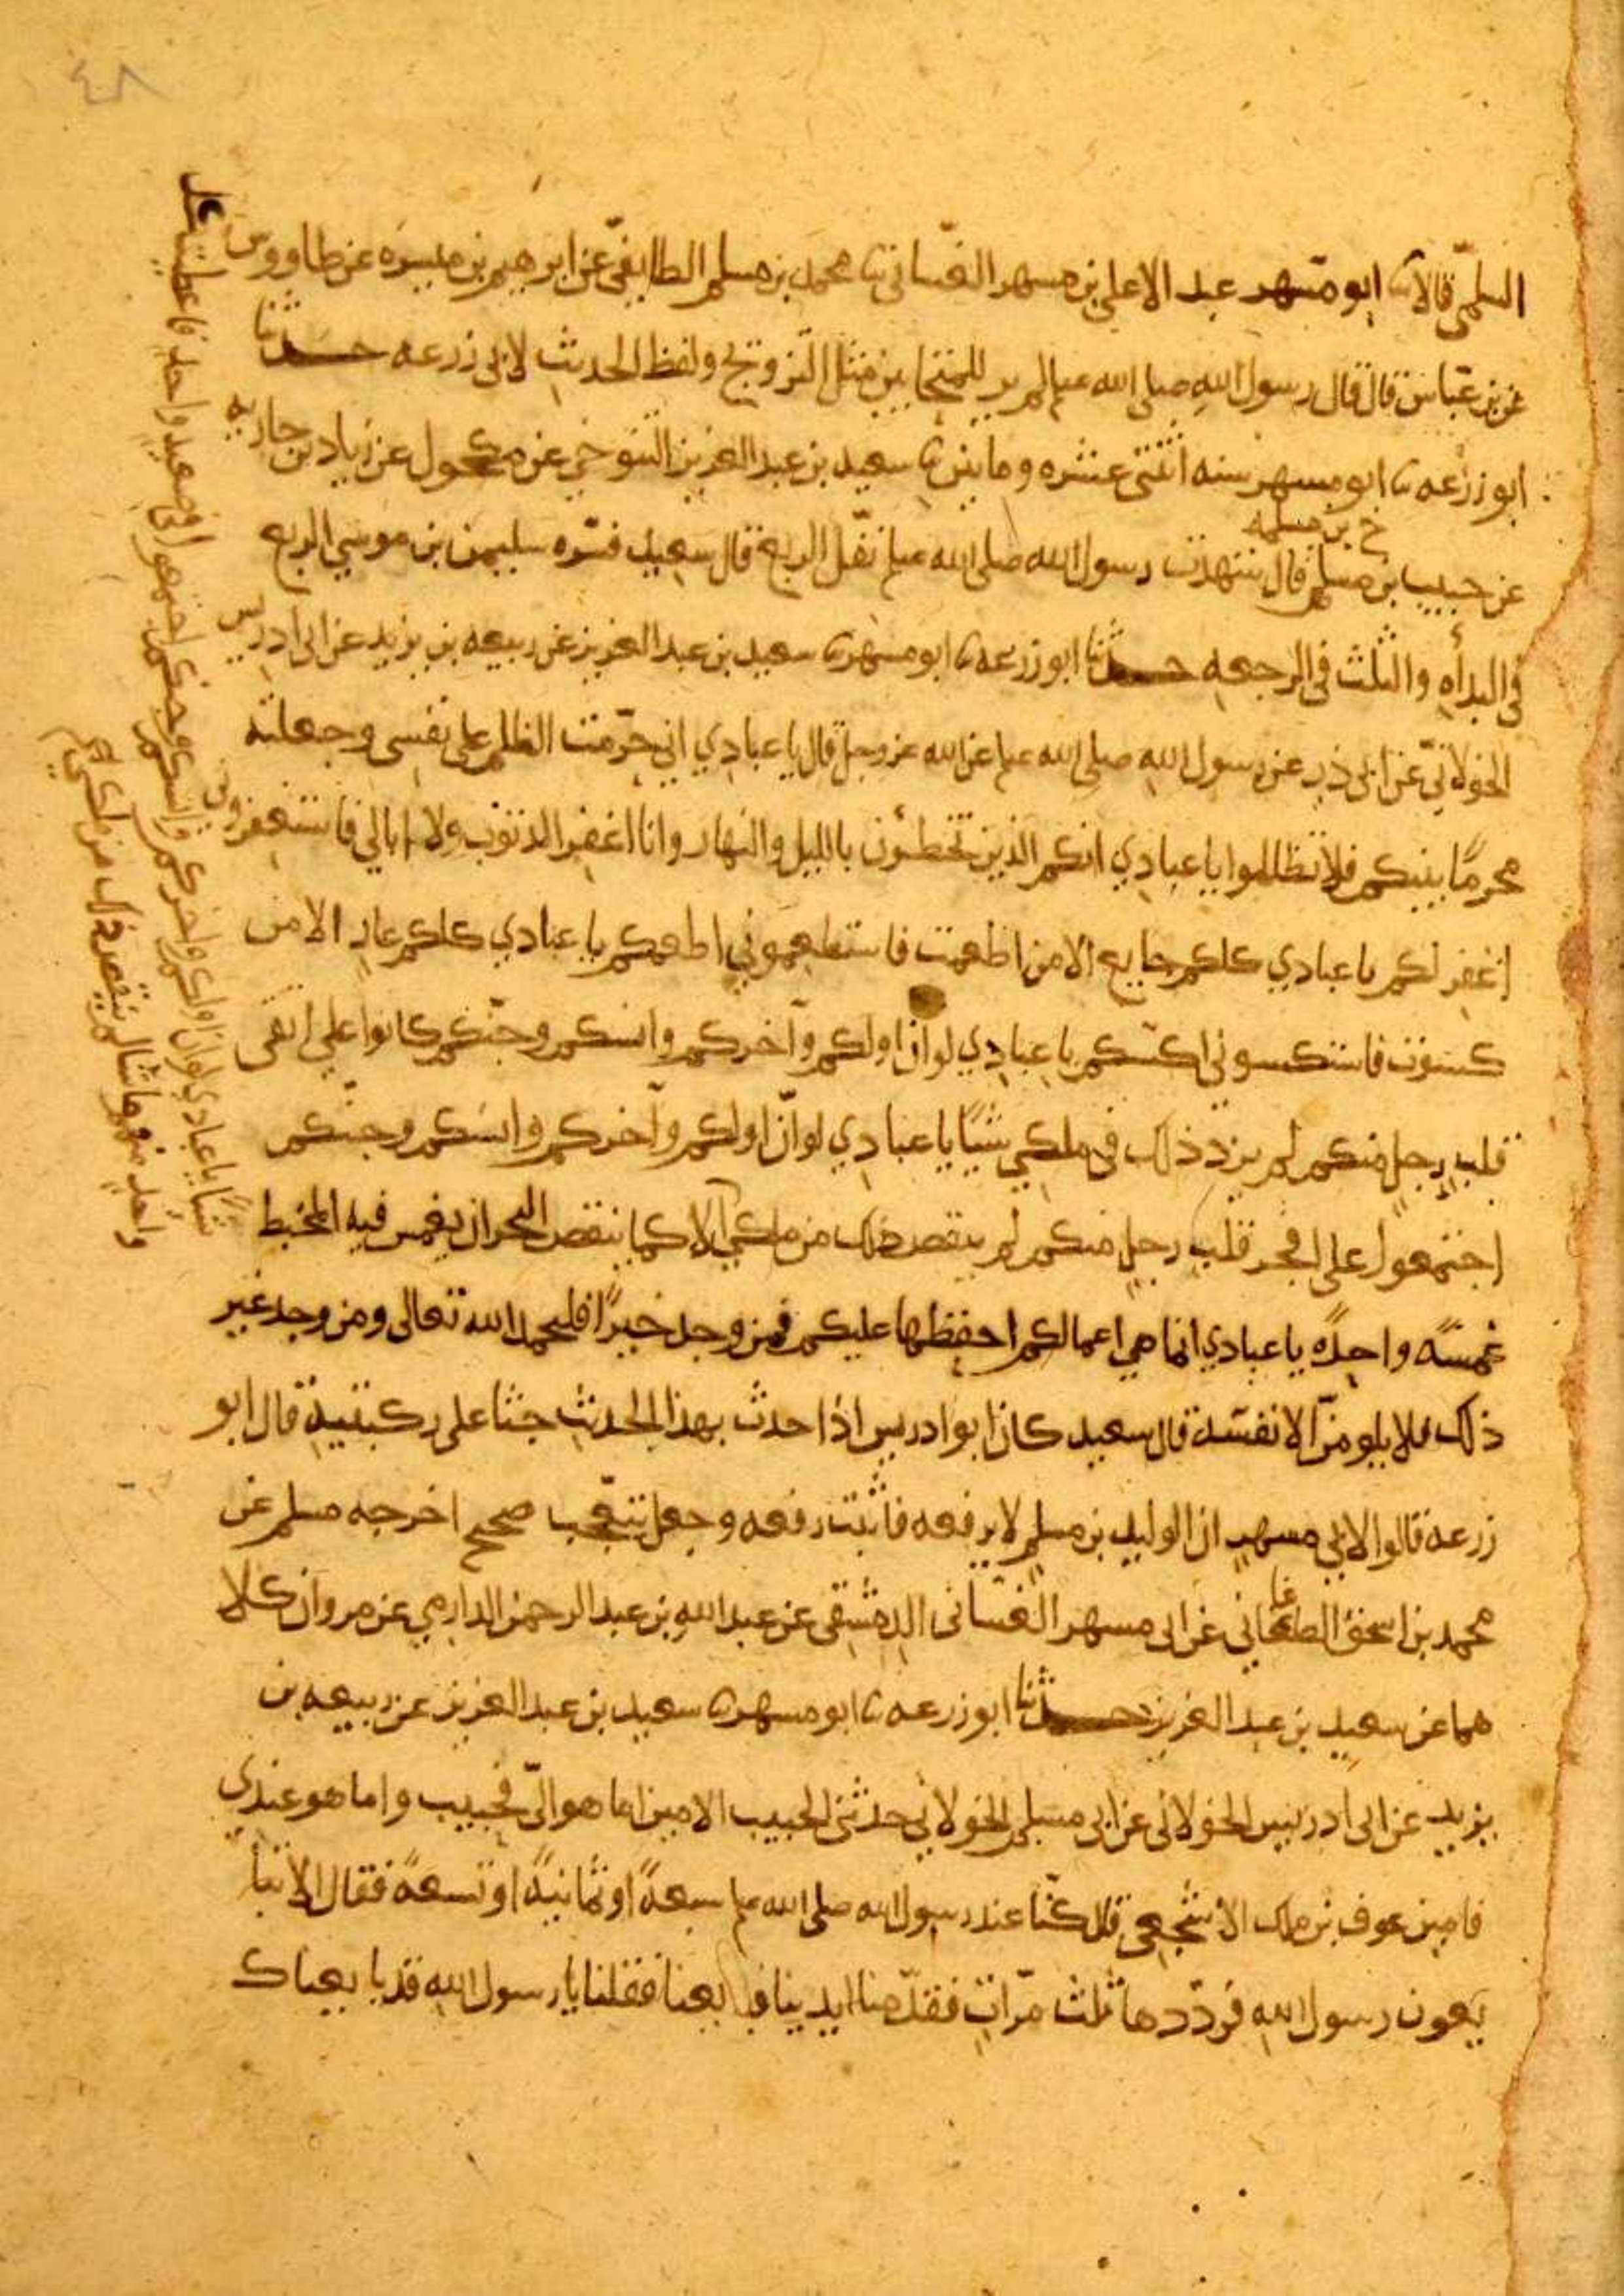 ٤٨
السلمي قالا ثنا ابو مسهر عبد الاعلى بن مسهر الغساني ثنا محمد بن مسلم الطايفي عن ابرهيم بن ميسره عن طاووس
عن بن عباس قال قال رسول الله صلى الله عليه لم ير للمتحابين مثل التزويج ولفظ الحديث لابي زرعه حدثنا
ابو زرعه ثنا ابو مسهر سنه اثنتى عشره ومايتين ثنا سعيد بن عبد العزيز التنوخي عن مكحول عن زياد بن جاريه
خ بن مسلمه
عن حبيب بن مسلم قال شهدت رسول الله صلى الله عليه نفل الربع قال سعيد فسره سليمن بن موسي الربع
في البدأه والثلث في الرجعه حدثنا ابو زرعه ثنا ابو مسهر ثنا سعيد بن عبد العزيز عن ربيعه بن يزيد عن ابي ادريس
الخولاني عن ابي ذر عن رسول الله صلى الله عليه عن الله عز وجل قال يا عبادي اني حرمت الظلم على نفسي وجعلته
محرما بينكم فلا تظالموا يا عبادي انكم الذين تخطئون بالليل والنهار وانا اغفر الذنوب ولا ابالي فاستغفروني
اغفر لكم يا عبادي كلكم جايع الا من اطعمت فاستطعموني اطعمكم يا عبادي كلكم عار الا من
كسوت فاستكسوني اكسكم يا عبادي لو ان اولكم وآخركم وانسكم وجنكم كانوا على اتقى
قلب رجل منكم لم يزد ذلك في ملكي شيئا يا عبادي لو ان اولكم وآخركم وانسكم وجنكم
اجتمعوا على افجر قلب رجل منكم لم ينقص ذلك من ملكي الا كما ينقص البحر ان يغمس فيه المخيط
غمسه واحده يا عبادي انما هي اعمالكم احفظها عليكم فمن وجد خيرا فليحمد الله تعالى ومن وجد غير
ذلك فلا يلومن الا نفسه قال سعيد كان ابو ادريس اذا حدث بهذا الحديث جثا على ركبتيه قال ابو
زرعه قالوا لابي مسهر ان الوليد بن مسلم لا يرفعه فاثبت رفعه وجعل يتعجب صحيح اخرجه مسلم عن
محمد بن اسحق الصاغاني عن ابي مسهر الغساني الدمشقي عن عبد الله بن عبد الرحمن الدارمي عن مروان كلا
هما عن سعيد بن عبد العزيز حدثنا ابو زرعه ثنا ابو مسهر ثنا سعيد بن عبد العزيز عن ربيعه بن
يزيد عن ابي ادريس الخولاني عن ابي مسلم الخولاني حدثني الحبيب الامين اما هو الي فحبيب واما هو عندي
فامين عوف بن ملك الاشجعي قال كنا عند رسول الله صلى الله عليه سبعة او ثمانية او تسعة فقال الا تبا
يعون رسول الله فرددها ثلث مرات فقدمنا ايدينا فبايعنا فقلنا يا رسول الله قد بايعناك
شيئا يا عبادي لو ان اولكم واخركم وانسكم وجنكم اجتمعوا في صعيد واحد فاعطيت كل
واحد منهم ما شا لم ينقص ذلك من ملكي